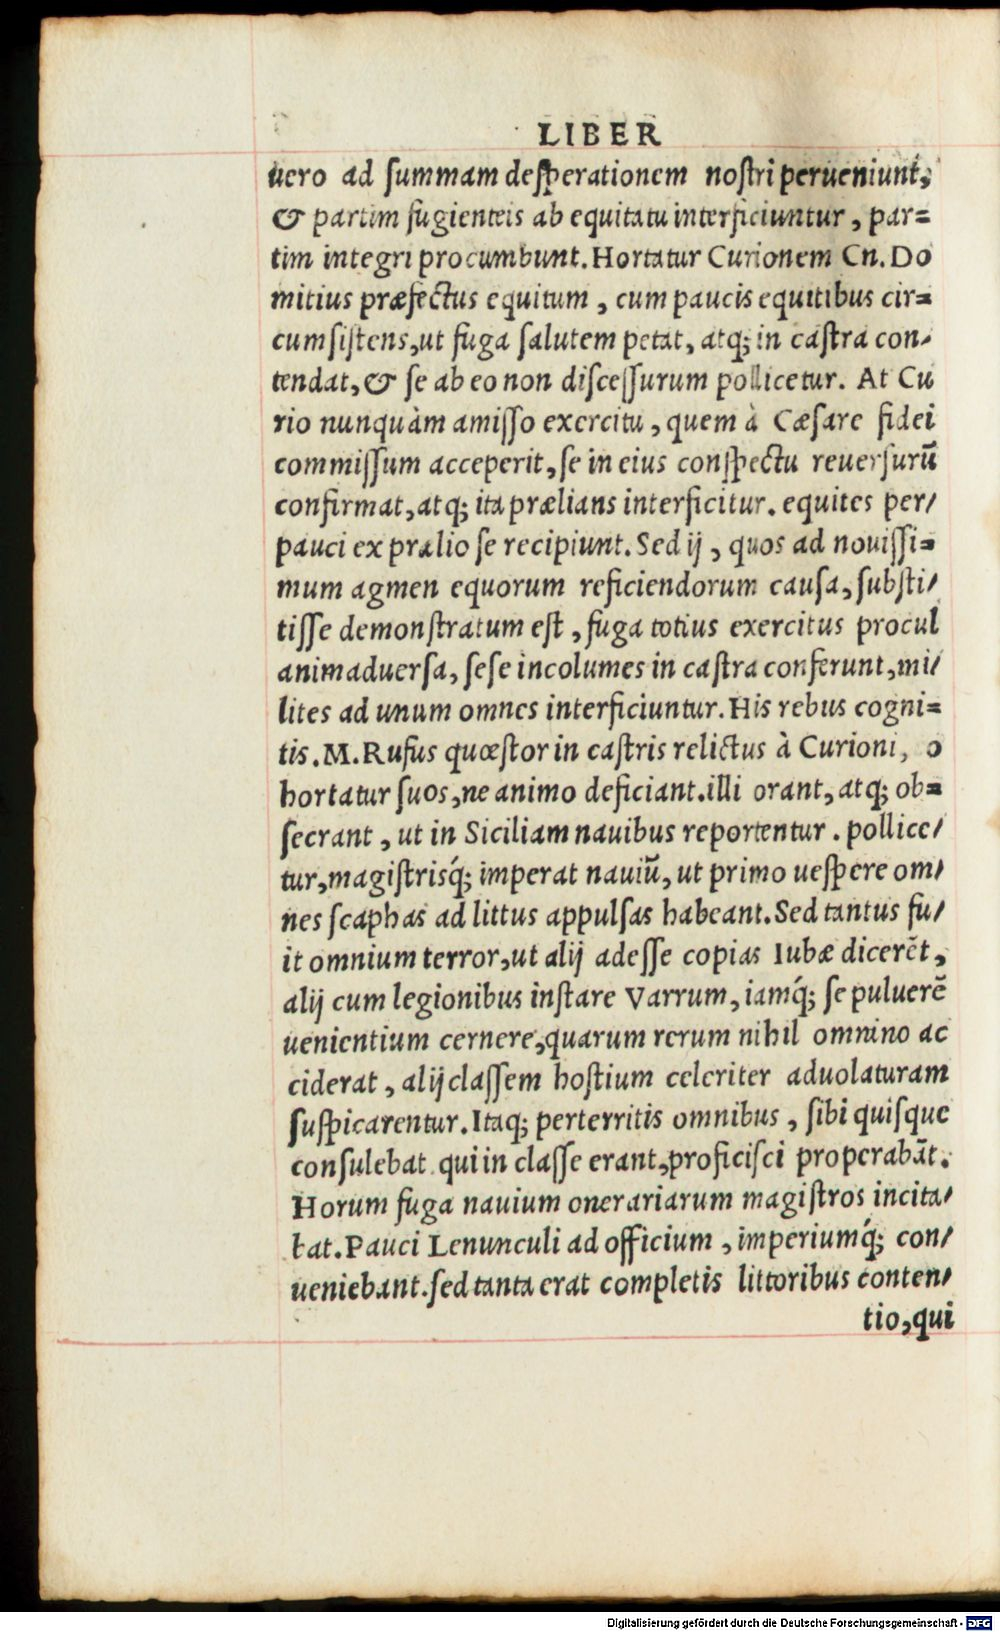 LIBER
uero ad ſummam deſperationem noſtri perueniunt,
& partim fugienteis ab equitatu interficiuntur, par=
tim integri procumbunt. Hortatur Curionem Cn. Do
mitius præfectus equitum, cum paucis equitibus cir=
cumſiſtens, ut fuga ſalutem petat, atq; in caſtra con-
tendat, & ſe ab eo non diſceſſurum pollicetur. At Cu
rio nunquàm amiſſo exercitu, quem à Cæſare fidei
commiſſum acceperit, ſe in eius conſpectu reuerſurũ
confirmat, atq; ita prælians interficitur. equites per-
pauci ex prælio ſe recipiunt. Sed ij, quos ad nouiſſi=
mum agmen equorum reficiendorum cauſa, ſubſti-
tiſſe demonſtratum eſt, fuga totius exercitus procul
animaduerſa, ſeſe incolumes in caſtra conferunt, mi-
lites ad unum omnes interficiuntur. His rebus cogni=
tis. M. Rufus quæſtor in caſtris relictus à Curioni, o
hortatur ſuos, ne animo deficiant. illi orant, atq; ob=
ſecrant, ut in Siciliam nauibus reportentur. pollice-
tur, magiſtrisq́; imperat nauiũ, ut primo ueſpere om-
nes ſcaphas ad littus appulſas habeant. Sed tantus fu-
it omnium terror, ut alij adeſſe copias Iubæ dicerẽt,
alij cum legionibus inſtare Varrum, iamq́; ſe puluerẽ
uenientium cernere, quarum rerum nihil omnino ac
ciderat, alij claſſem hoſtium celeriter aduolaturam
ſuſpicarentur. Itaq; perterritis omnibus, ſibi quiſque
conſulebat. qui in claſſe erant, proficiſci properabãt.
Horum fuga nauium onerariarum magiſtros incita-
bat. Pauci Lenunculi ad officium, imperiumq́; con-
ueniebant. ſed tanta erat completis littoribus conten-
tio, qui
Digitalisierung gefördert durch die Deutsche Forschungsgemeinschaft - DFG